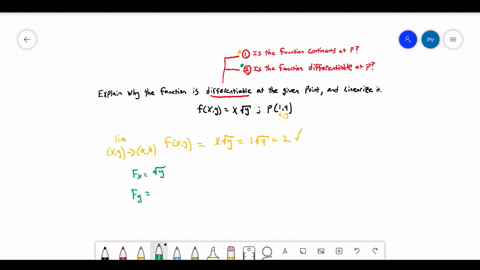 ① Is the function continuous at P?
② Is the function differentiable at P?
Explain why the function is differentiable at the given point, and linearize it.
f(x,y) = x√y ; P(1,4)
x,y
lim (x,y)→(a,b) f(x,y) = x√y = 1√4 = 2 ✓
Fx = √y
Fy =
PV
A